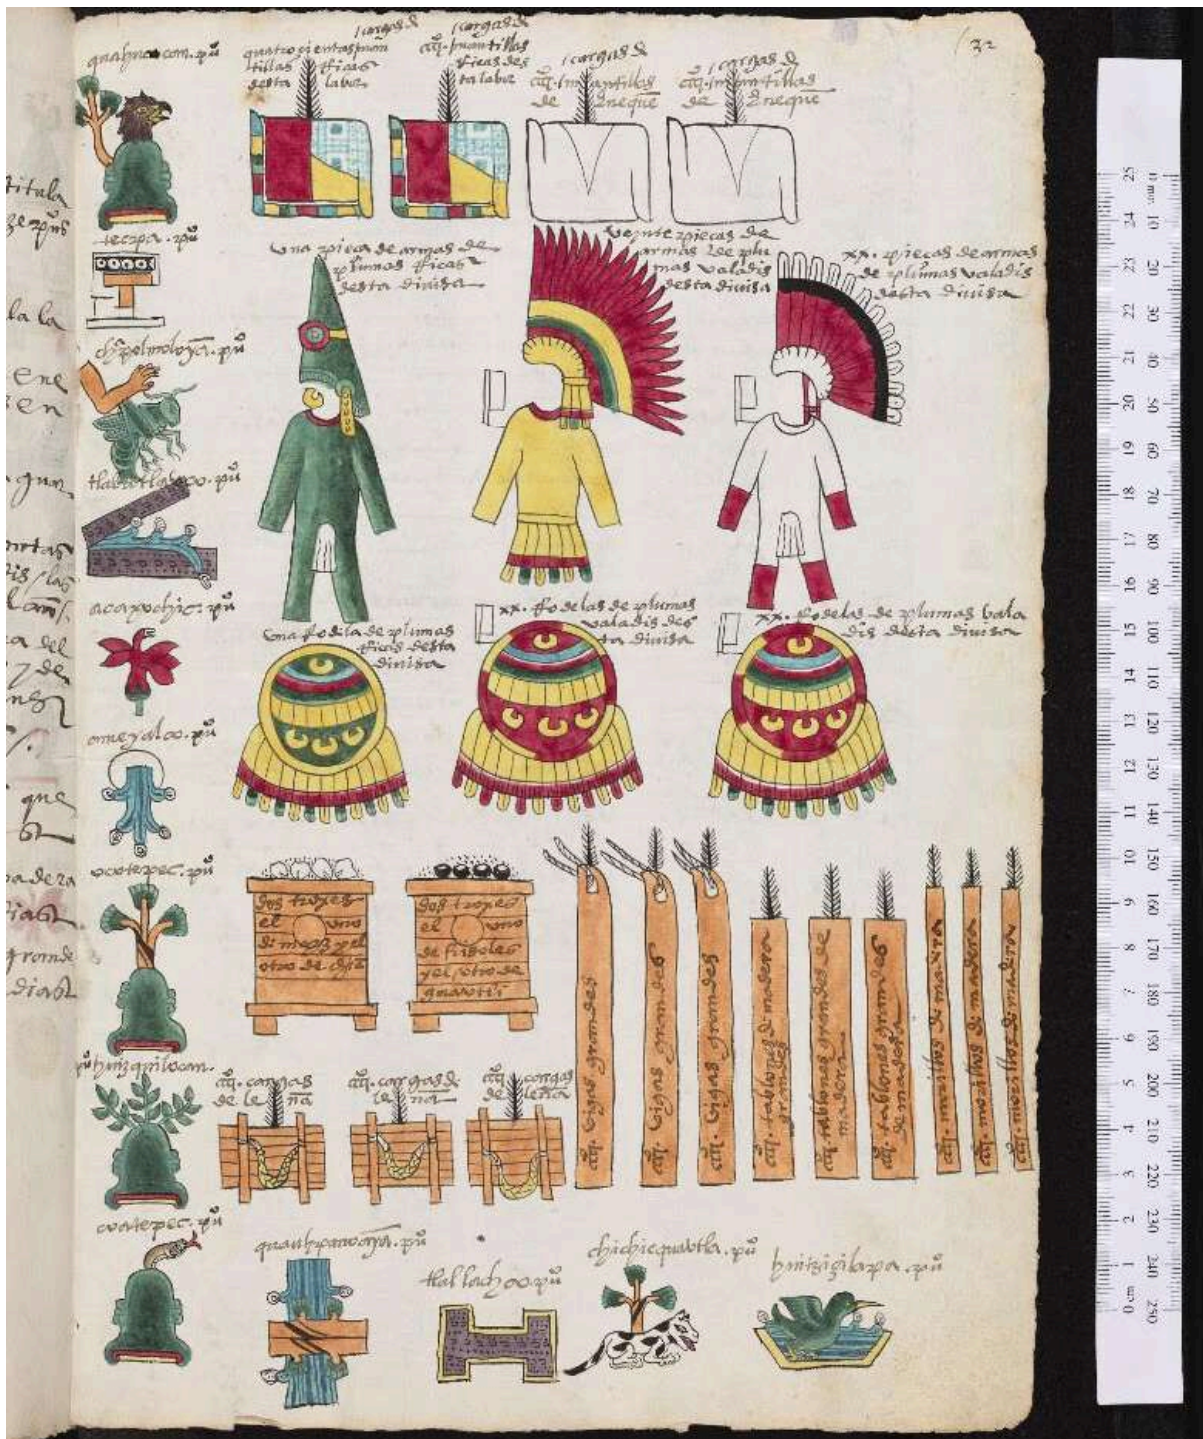 32
quahuacan. puo
quatroçientas man
tillas ricas
desta labor
cargas d
mantillas
ricas des
ta labor
cargas d
mantillas
de eneqūe
cargas d
mantillas
de eneqūe
tecpa. puo
Una pieça de armas de
plumas ricas
desta diuisa
Veynte pieças de
armas de plu
mas valadis
desta diuisa
xx. pieças de armas
de plumas valadis
desta diuisa
chapolmoloyā. puo
tlalatlauco. puo
acaxochic. puo
Una rodela de plumas
ricas desta
diuisa
xx. rodelas de plumas
valadis des
ta diuisa
xx. rodelas de plumas vala
dis desta diuisa
ameyalco. puo
ocotepec. puo
dos troxes
el uno
de maiz y el
otro de
dos troxes
el uno
de frisoles
y el otro de
guautli
vigas grandes
vigas grandes
vigas grandes
tablones de madera
grandes
tablones grandes de
madera
tablones grandes
de madera
morillos de madera
morillos de madera
morillos de madera
huizquilocan. puo
cargas
de leña
cargas de
leña
cargas
de leña
coatepec. puo
quauhpanoayā. puo
tlallachco. puo
chichicquavtla. puo
huitziçilapa. puo
titula
la la
ene
en
que
grande
25 24 23 22 21 20 19 18 17 16 15 14 13 12 11 10 9 8 7 6 5 4 3 2 1 0 cm
0 mm 10 20 30 40 50 60 70 80 90 100 110 120 130 140 150 160 170 180 190 200 210 220 230 240 250